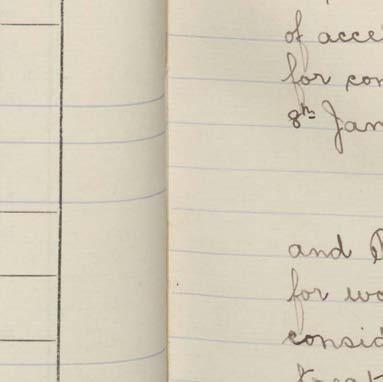 of acce
for con
8th Jan
and
for wo
consid